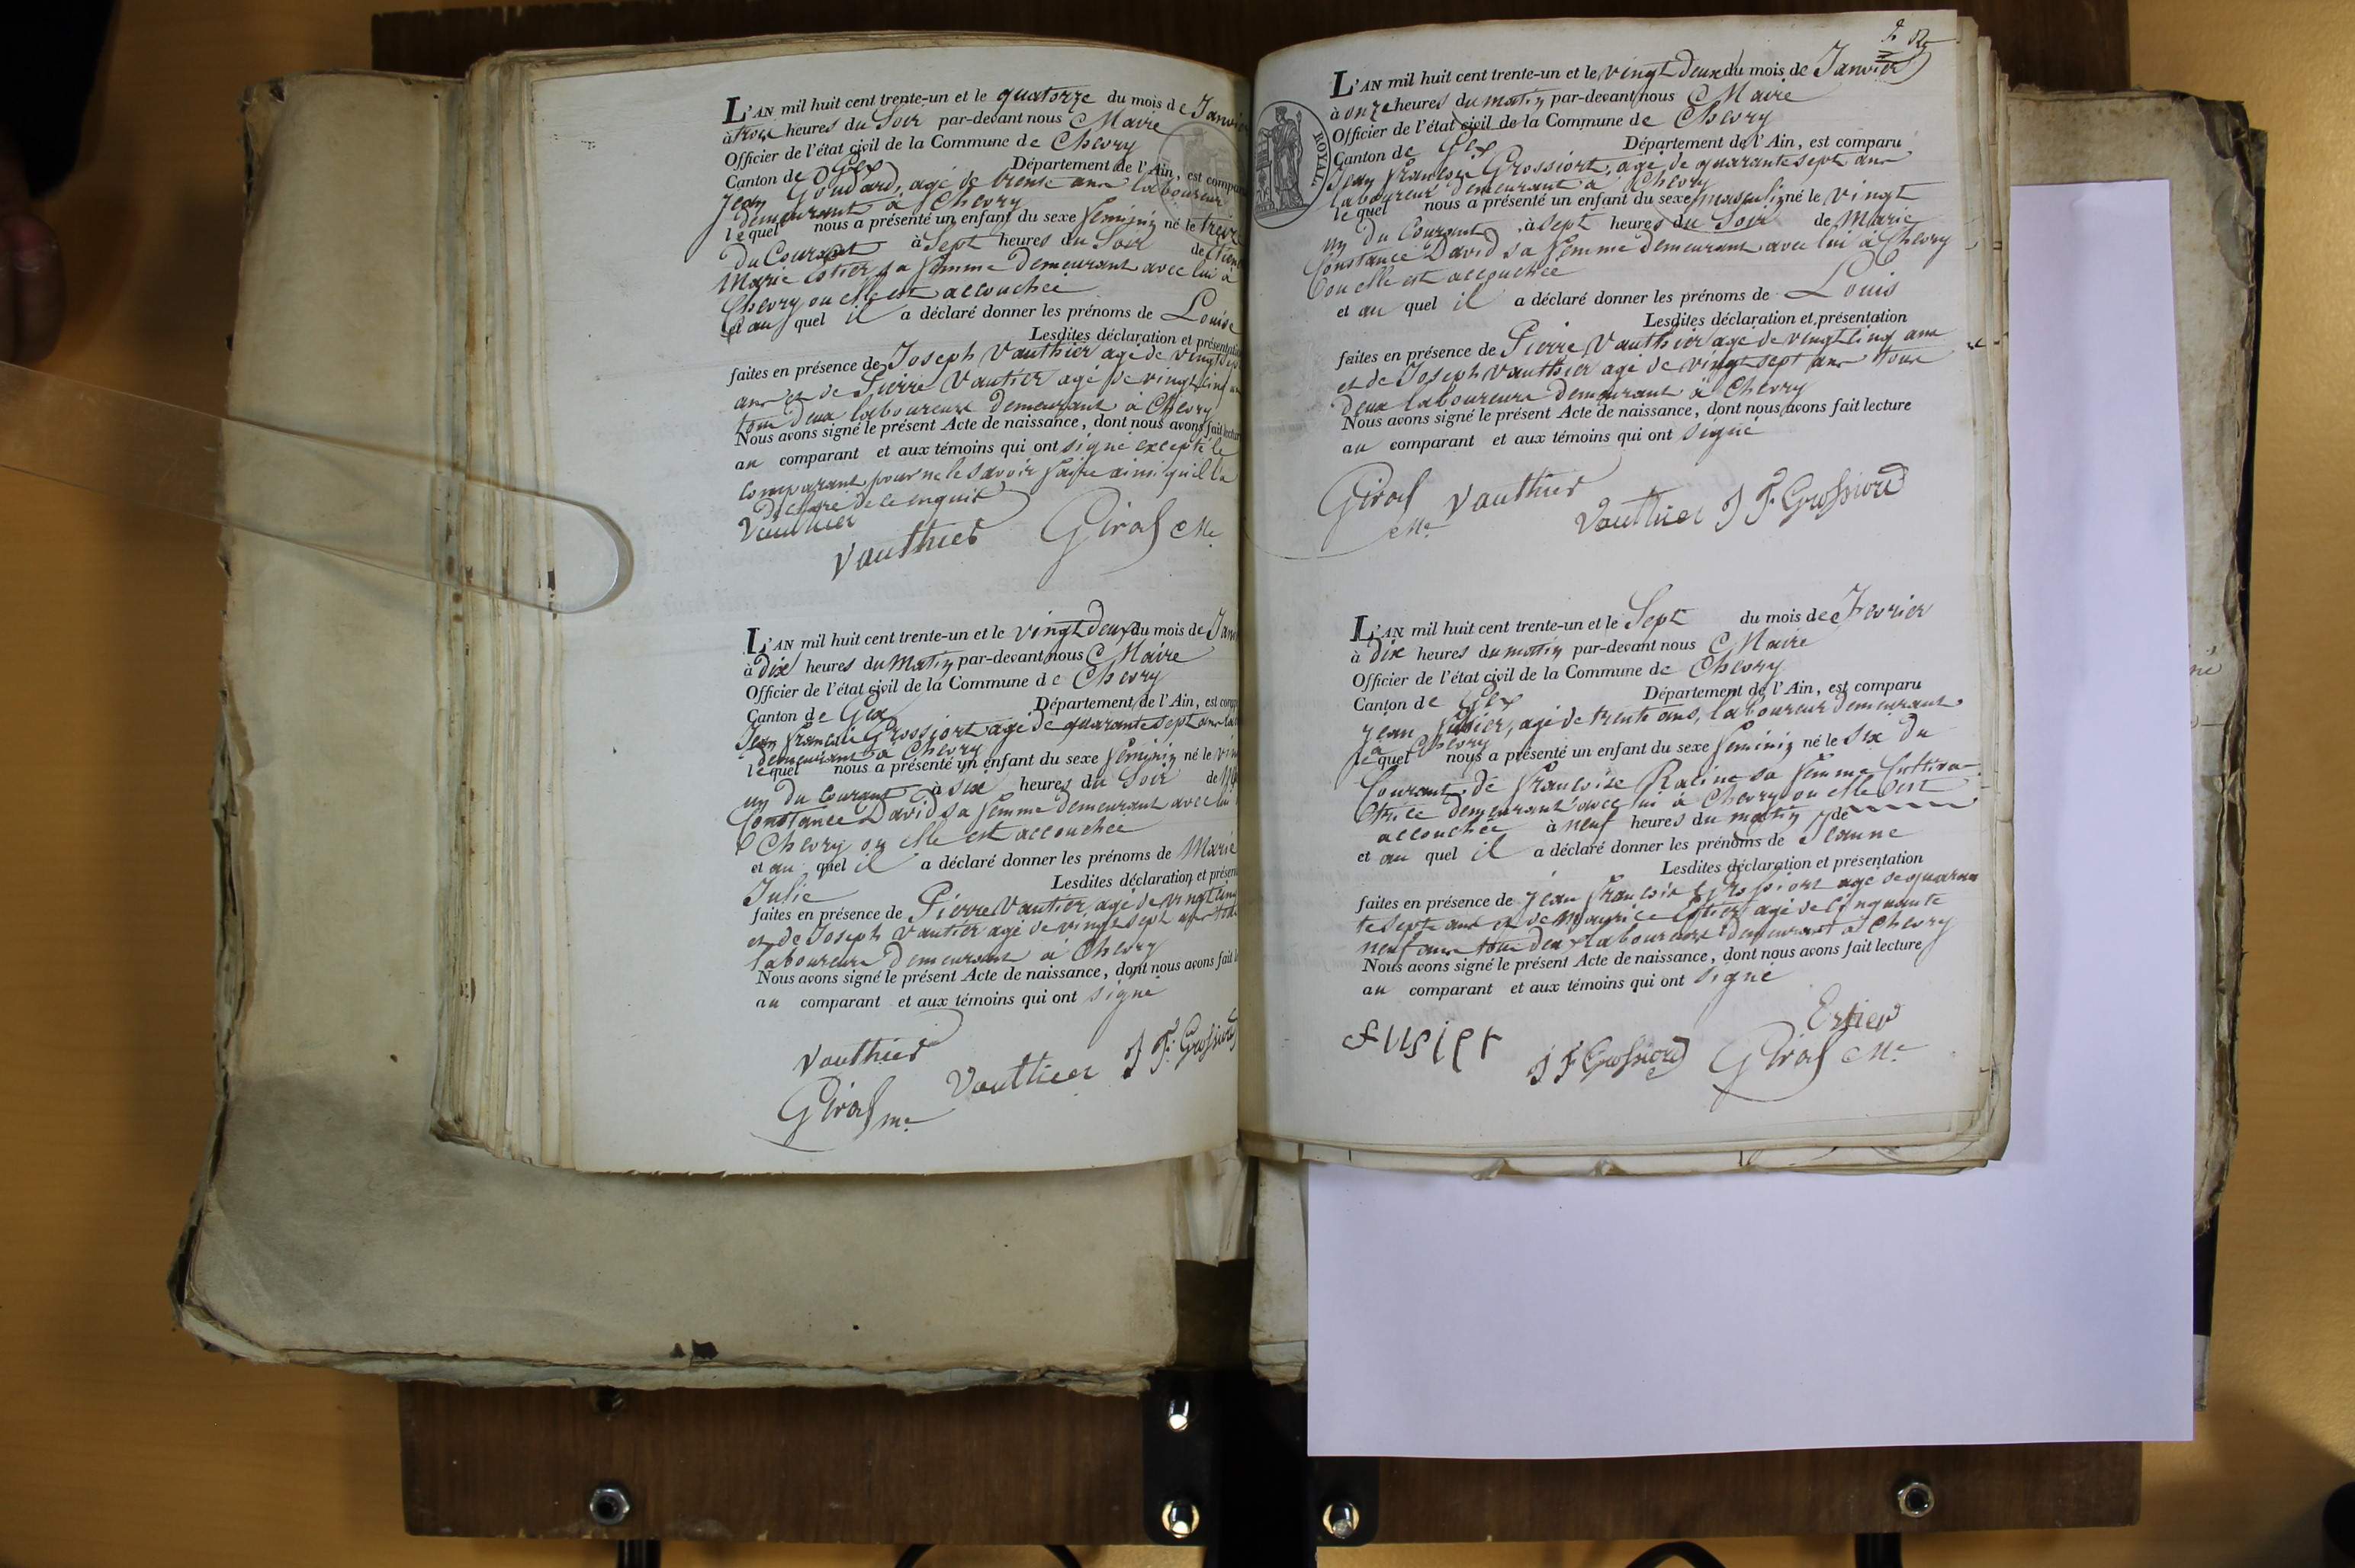 L'AN mil huit cent trente-un et le quatorze du mois de Janvi
à trois heures du Soir par-devant nous Maire
Officier de l'état civil de la Commune de Chevry
Canton de Gex Département de l'Ain, est compa
Jean Goudard, agé de trente ans laboureur
demeurant à Chevry
lequel nous a présenté un enfant du sexe feminin né le treiz
du Courant à Sept heures du Soir de
Marie Estier sa femme demeurant avec lui à
Chevry ou elle est accouchée
et au quel il a déclaré donner les prénoms de Louise
Lesdites déclaration et présentation
faites en présence de Joseph Vauthier agé de vingt sep
ans et de Pierre Vautier agé de vingt cinq an
tous deux laboureurs demeurant à Chevry
Nous avons signé le présent Acte de naissance, dont nous avons fait lectur
au comparant et aux témoins qui ont signé excepté le
comparant pour ne le savoir faire ainsi qu'il l'a
déclaré de ce enquis
Vauthier
Vauthier Girod Me
L'AN mil huit cent trente-un et le vingt deux du mois de Jan
à dix heures du matin par-devant nous Maire
Officier de l'état civil de la Commune de Chevry
Canton de Gex Département de l'Ain, est comp
Jean françois Grossiort agé de quarante sept ans la
demeurant à Chevry
lequel nous a présenté un enfant du sexe feminin né le vin
un du Courant à six heures du Soir de M
Constance David sa femme demeurant avec lui
Chevry ou elle est accouchée
et au quel il a déclaré donner les prénoms de Marie
Julie Lesdites déclaration et présen
faites en présence de Pierre Vautier agé de vingt cinq
et de Joseph Vautier agé de vingt sept ans tous
laboureurs demeurant à Chevry
Nous avons signé le présent Acte de naissance, dont nous avons fait l
au comparant et aux témoins qui ont signé
Vauthier
Vauthier J F Grossiord
Girod me
L'AN mil huit cent trente-un et le vingt deux du mois de Janvier
à onze heures du matin par-devant nous Maire
Officier de l'état civil de la Commune de Chevry
Canton de Gex Département de l'Ain, est comparu
Jean françois Grossiort, agé de quarante sept ans
laboureur demeurant à Chevry
le quel nous a présenté un enfant du sexe masculin né le vingt
un du Courant, à sept heures du Soir de Marie
Constance David sa femme demeurant avec lui à Chevry
ou elle est accouchée
et au quel il a déclaré donner les prénoms de Louis
Lesdites déclaration et présentation
faites en présence de Pierre Vauthier agé de vingt cinq ans
et de Joseph Vauthier agé de vingt sept ans tous
deux laboureurs demeurant à Chevry
Nous avons signé le présent Acte de naissance, dont nous avons fait lecture
au comparant et aux témoins qui ont signé
Girod Vauthier
Me Vauthier J F Grossiord
ROYAL
L'AN mil huit cent trente-un et le Sept du mois de Fevrier
à dix heures du matin par-devant nous Maire
Officier de l'état civil de la Commune de Chevry
Canton de Gex Département de l'Ain, est comparu
Jean fusier, agé de trente ans, laboureur demeurant
à Chevry
lequel nous a présenté un enfant du sexe feminin né le six du
Courant, de françoise Raline sa femme Cultiva-
trice demeurant avec lui à Chevry ou elle s'est
accouchée à neuf heures du matin de
et au quel il a déclaré donner les prénoms de Jeanne
Lesdites déclaration et présentation
faites en présence de Jean françois Grossiort agé de quaran
te sept ans et de Maurice Estier agé de cinquante
neuf ans tous deux laboureurs demeurant à Chevry
Nous avons signé le présent Acte de naissance, dont nous avons fait lecture
au comparant et aux témoins qui ont signé
Estier
fusier J F Grossiord Girod Me